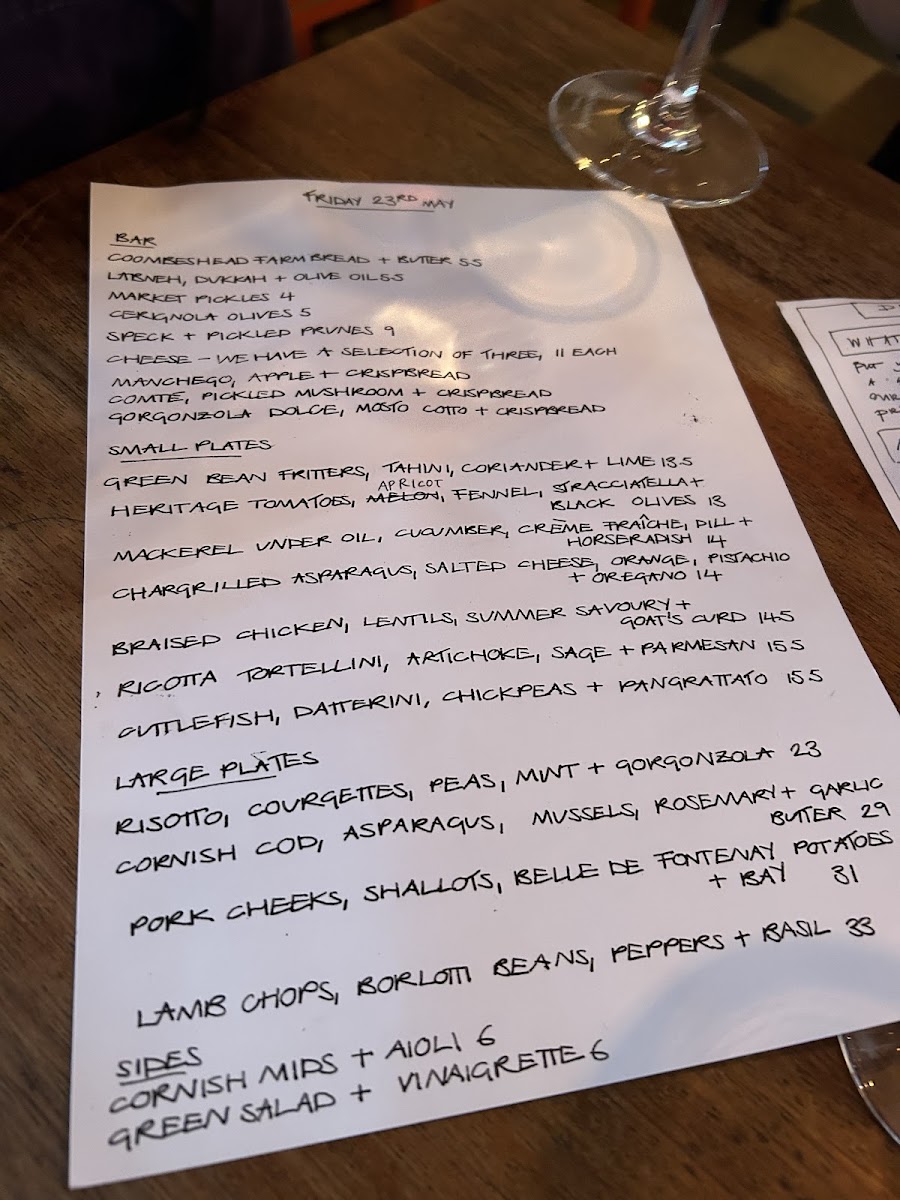 FRIDAY 23RD MAY
BAR
COOMBESHEAD FARM BREAD + BUTTER 5.5
LABNEH, DUKKAH + OLIVE OIL 5.5
MARKET PICKLES 4
CERIGNOLA OLIVES 5
SPECK + PICKLED PRUNES 9
CHEESE – WE HAVE A SELECTION OF THREE, 11 EACH
MANCHEGO, APPLE + CRISPBREAD
COMTE, PICKLED MUSHROOM + CRISPBREAD
GORGONZOLA DOLCE, MOSTO COTTO + CRISPBREAD
SMALL PLATES
GREEN BEAN FRITTERS, TAHINI, CORIANDER + LIME 13.5
APRICOT
HERITAGE TOMATOES, MELON, FENNEL, STRACCIATELLA +
BLACK OLIVES 13
MACKEREL UNDER OIL, CUCUMBER, CRÈME FRAÎCHE, DILL +
HORSERADISH 14
CHARGRILLED ASPARAGUS, SALTED CHEESE, ORANGE, PISTACHIO
+ OREGANO 14
BRAISED CHICKEN, LENTILS, SUMMER SAVOURY +
GOAT'S CURD 14.5
RICOTTA TORTELLINI, ARTICHOKE, SAGE + PARMESAN 15.5
CUTTLEFISH, DATTERINI, CHICKPEAS + PANGRATTATO 15.5
LARGE PLATES
RISOTTO, COURGETTES, PEAS, MINT + GORGONZOLA 23
CORNISH COD, ASPARAGUS, MUSSELS, ROSEMARY + GARLIC
BUTTER 29
PORK CHEEKS, SHALLOTS, BELLE DE FONTENAY POTATOES
+ BAY 31
LAMB CHOPS, BORLOTTI BEANS, PEPPERS + BASIL 33
SIDES
CORNISH MIDS + AIOLI 6
GREEN SALAD + VINAIGRETTE 6
WHAT
PUT
A
OUR